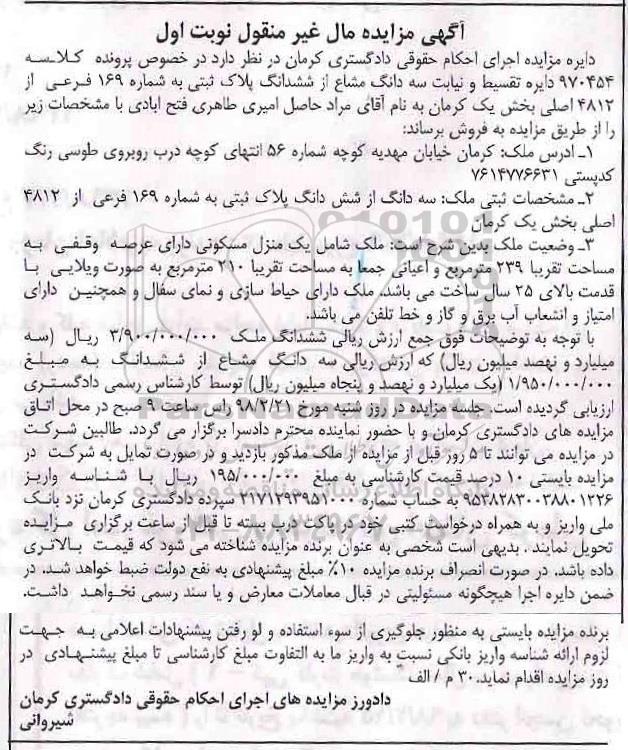 آگهی مزایده مال غیر منقول نوبت اول
دایره مزایده اجرای احکام حقوقی دادگستری کرمان در نظر دارد در خصوص پرونده کلاسه
۹۷۰۴۵۴ دایره تقسیط و نیابت سه دانگ مشاع از ششدانگ پلاک ثبتی به شماره ۱۶۹ فرعی از
۴۸۱۲ اصلی بخش یک کرمان به نام آقای مراد حاصل امیری طاهری فتح ابادی با مشخصات زیر
را از طریق مزایده به فروش برساند:
۱ـ ادرس ملک: کرمان خیابان مهدیه کوچه شماره ۵۶ انتهای کوچه درب روبروی طوسی رنگ
کدپستی ۷۶۱۴۷۷۶۶۳۱
۲ـ مشخصات ثبتی ملک: سه دانگ از شش دانگ پلاک ثبتی به شماره ۱۶۹ فرعی از ۴۸۱۲
اصلی بخش یک کرمان
۳ـ وضعیت ملک بدین شرح است: ملک شامل یک منزل مسکونی دارای عرصه وقفی به
مساحت تقریبا ۲۳۹ مترمربع و اعیانی جمعا به مساحت تقریبا ۲۱۰ مترمربع به صورت ویلایی با
قدمت بالای ۲۵ سال ساخت می باشد. ملک دارای حیاط سازی و نمای سفال و همچنین دارای
امتیاز و انشعاب آب برق و گاز و خط تلفن می باشد.
با توجه به توضیحات فوق جمع ارزش ریالی ششدانگ ملک ۳/۹۰۰/۰۰۰/۰۰۰ ریال (سه
میلیارد و نهصد میلیون ریال) که ارزش ریالی سه دانگ مشاع از ششدانگ به مبلغ
۱/۹۵۰/۰۰۰/۰۰۰ (یک میلیارد و نهصد و پنجاه میلیون ریال) توسط کارشناس رسمی دادگستری
ارزیابی گردیده است. جلسه مزایده در روز شنبه مورخ ۹۸/۲/۲۱ راس ساعت ۹ صبح در محل اتاق
مزایده های دادگستری کرمان و با حضور نماینده محترم دادسرا برگزار می گردد. طالبین شرکت
در مزایده می توانند تا ۵ روز قبل از مزایده از ملک مذکور بازدید و در صورت تمایل به شرکت در
مزایده بایستی ۱۰ درصد قیمت کارشناسی به مبلغ ۱۹۵/۰۰۰/۰۰۰ ریال با شناسه واریز
۹۵۳۸۲۸۳۰۰۳۸۸۰۱۲۲۶ به حساب شماره ۲۱۷۱۲۹۳۹۵۱۰۰۰ سپرده دادگستری کرمان نزد بانک
ملی واریز و به همراه درخواست کتبی خود در پاکت درب بسته تا قبل از ساعت برگزاری مزایده
تحویل نمایند . بدیهی است شخصی به عنوان برنده مزایده شناخته می شود که قیمت بالاتری
داده باشد. در صورت انصراف برنده مزایده ۱۰٪ مبلغ پیشنهادی به نفع دولت ضبط خواهد شد. در
ضمن دایره اجرا هیچگونه مسئولیتی در قبال معاملات معارض و یا سند رسمی نخواهد داشت.
برنده مزایده بایستی به منظور جلوگیری از سوء استفاده و لو رفتن پیشنهادات اعلامی به جهت
لزوم ارائه شناسه واریز بانکی نسبت به واریز ما به التفاوت مبلغ کارشناسی تا مبلغ پیشنهادی در
روز مزایده اقدام نماید. ۳۰ م / الف
دادورز مزایده های اجرای احکام حقوقی دادگستری کرمان
شیروانی